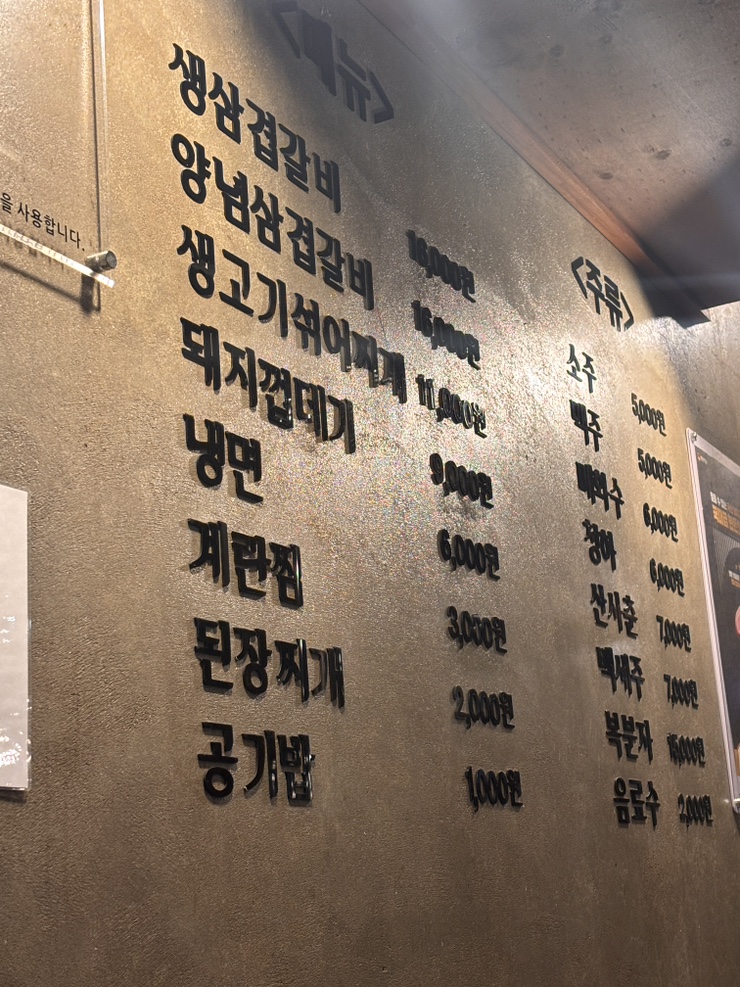 을 사용합니다.
<메뉴>
생삼겹갈비 16,000원
양념삼겹갈비 16,000원
생고기섞어찌개 11,000원
돼지껍데기 9,000원
냉면 6,000원
계란찜 3,000원
된장찌개 2,000원
공기밥 1,000원
<주류>
소주 5,000원
맥주 5,000원
매화수 6,000원
청하 6,000원
산사춘 7,000원
백세주 7,000원
복분자 15,000원
음료수 2,000원